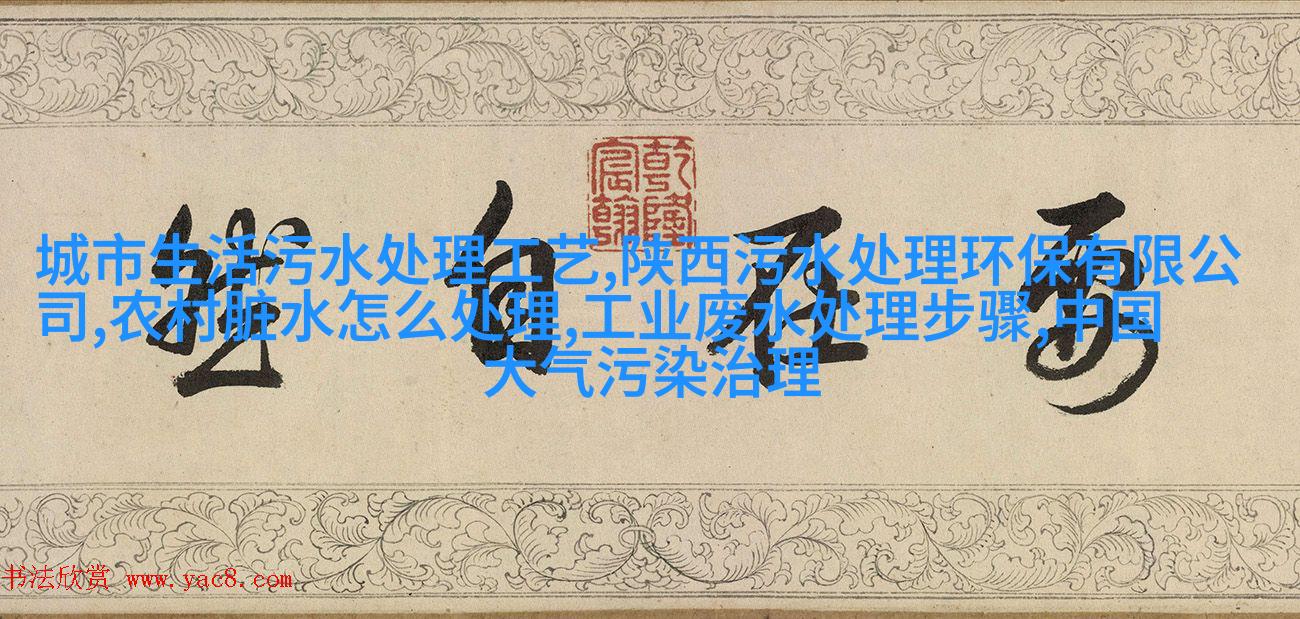 乾隆宸翰
自然
城市生活污水处理工艺,陕西污水处理环保有限公
司,农村脏水怎么处理,工业废水处理步骤,中国
大气污染治理
书法欣赏 www.yac8.com